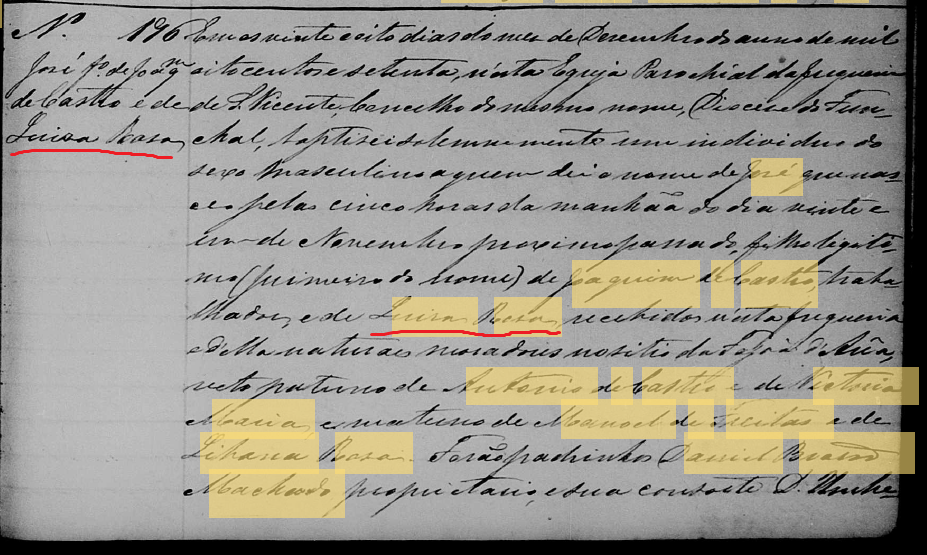 Nº 196
José fº de Joaqm
de Castro e de
Luiza Rosa
Em os vinte e oito dias do mez de Desembro do anno de mil
oitocentos e setenta, n'esta Egreja Parochial da freguezia
de S. Vicente, Concelho do mesmo nome, Diocese do Fun-
chal, baptisei solemnemente um individuo do
sexo masculino a quem dei o nome de José que nas-
ceo pelas cinco horas da manhãa do dia vinte e
um de Novembro proximo passado, filho legiti-
mo (primeiro do nome) de Joaquim de Castro, traba-
lhador, e de Luiza Rosa, recebidos n'esta freguezia
e d'ella naturaes moradores no sitio da
neto paterno de Antonio de Castro e de Victoria
Maria, e materno de Manoel de Freitas e de
Libania Rosa. Forão padrinhos Daniel
Machado, proprietario, e sua consorte D.